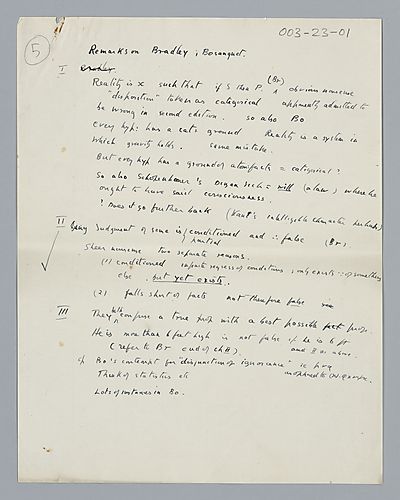 003-23-01
5
Remarks on Bradley, Bosanquet.
I
Reality is x such that if S then P. (Br) obvious nonsense
"disposition" taken as categorical apparently admitted to
be wrong in second edition. so also Bo
Every hyp: has a cat: ground Reality is a system in
which gravity holds. same mistake.
But every hyp has a ground of atomic facts = categorical?
So also Schopenhauer's Organ seeks = will (a law) where he
ought to have said consciousness.
? Does it go further back (Kant's intelligible character perhaps)
II Every Judgment of sense is conditioned and ∴ false (Br),
partial
Sheer nonsense two separate reasons.
(1) conditioned infinite regress of conditions, only exists ∵ of something
else, but yet exists.
(2) falls short of facts not therefore false
III They both compare a true prop with a best possible prop.
He is more than 6 feet high is not false if he is 6 ft
(refer to Br end of ch II) and
cf Bo's contempt for "disjunction of ignorance" ie p v q
Think of statistics etc as opposed to
Lots of instances in Bo.